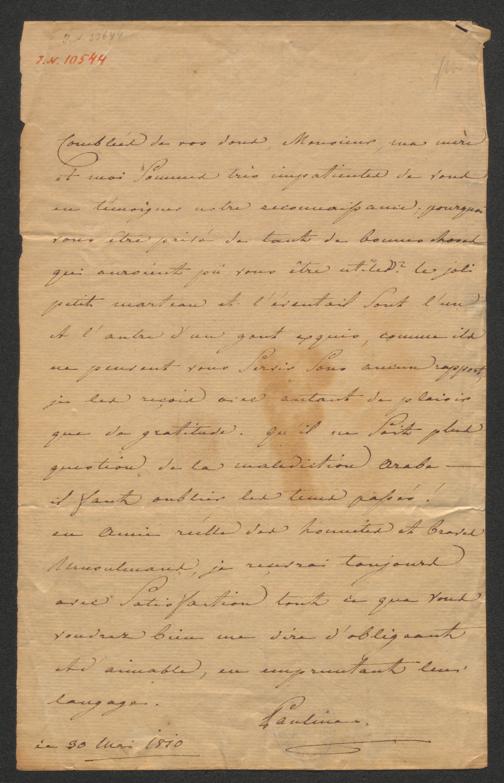 I.N. 10544
Comblées de vos dons, Monsieur, ma mère
et moi Sommes très impatientes de vous
en témoigner notre reconnaissance. pourquoi
vous être privé de tant de bonnes choses
qui auroient pû vous être utiles? le joli
petit marteau et l'éventail Sont l'un
et l'autre d'un gout exquis, comme ils
ne peuvent vous Servir Sous aucun rapport,
je les reçois avec autant de plaisir
que de gratitude. qu'il ne Soit plus
question de la malediction arabe —
il faut oublier les tems passés!
en Amie réelle des honnêtes et braves
Musulmans, je recevrai toujours
avec Satisfaction tout ce que vous
voudrez bien me dire d'obligeant
et d'aimable, en empruntant leur
langage.
Pauline.
ce 30 Mai 1810